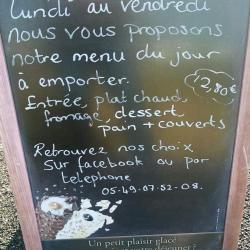 Lundi au vendredi
nous vous proposons
notre menu du jour
à emporter.
12,80€
Entrée, plat chaud,
fromage, dessert,
pain + couverts
Retrouvez nos choix
Sur facebook ou par
telephone
05-49-07-52-08.
Un petit plaisir glacé
votre déjeuner !